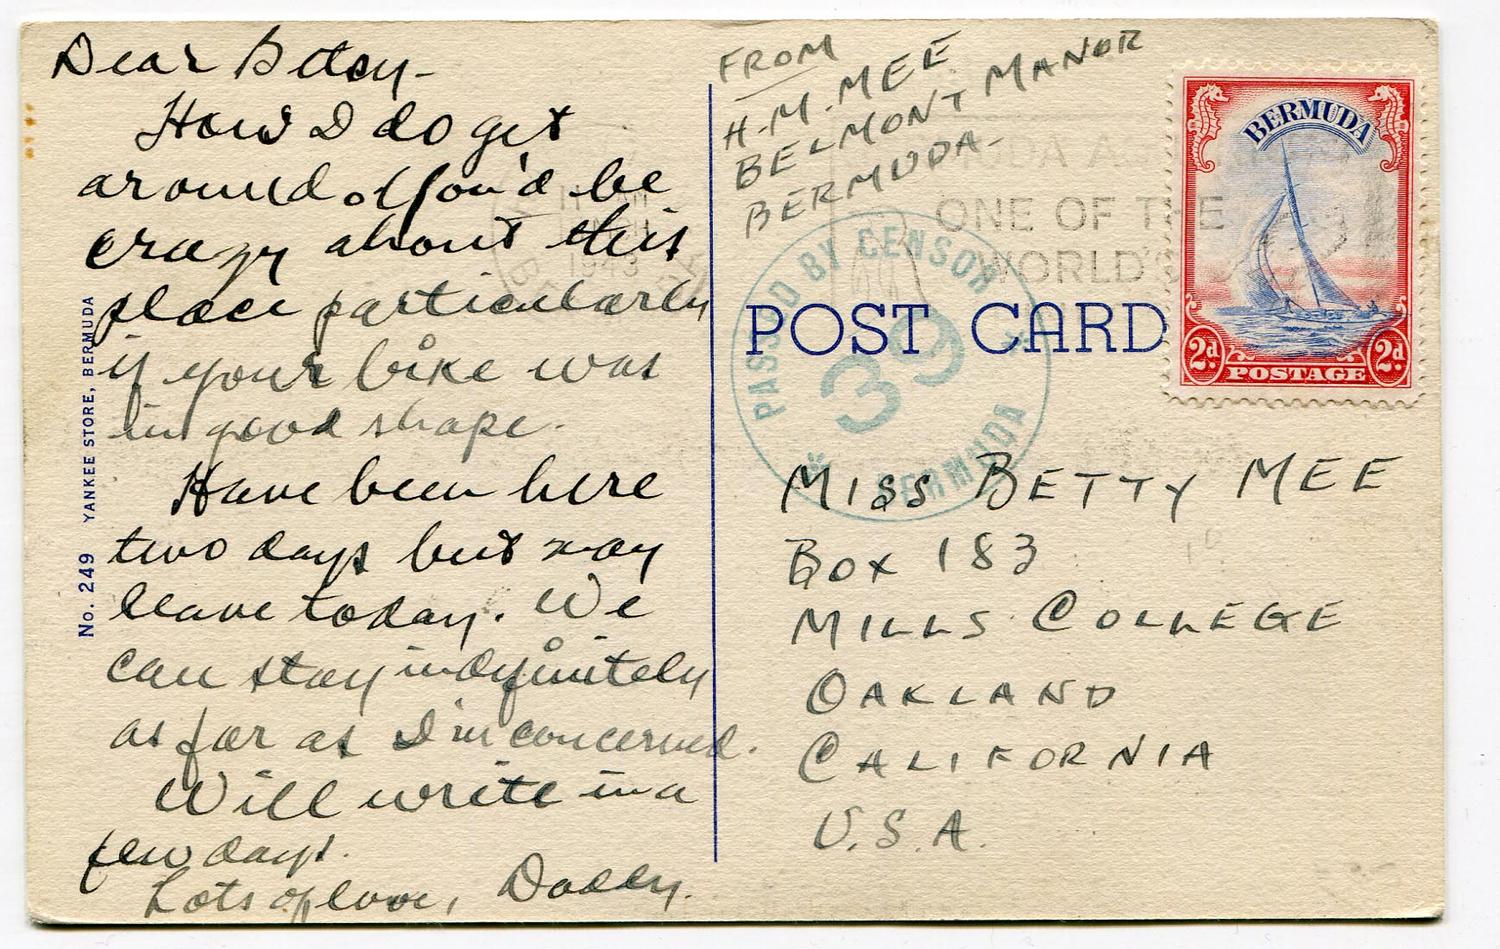 Dear Betsy-
How I do get
around. You'd be
crazy about this
place particularly
if your bike was
in good shape.
Have been here
two days but may
leave today. We
can stay indefinitely
as far as I'm concerned.
Will write in a
few days.
Lots of love, Daddy.
No. 249 YANKEE STORE, BERMUDA
FROM
H.M. MEE
BELMONT MANOR
BERMUDA-
1943
ONE OF THE
WORLD'S
PASSED BY CENSOR
39
BERMUDA
POST CARD
BERMUDA
2d. 2d.
POSTAGE
MISS BETTY MEE
BOX 183
MILLS COLLEGE
OAKLAND
CALIFORNIA
U.S.A.